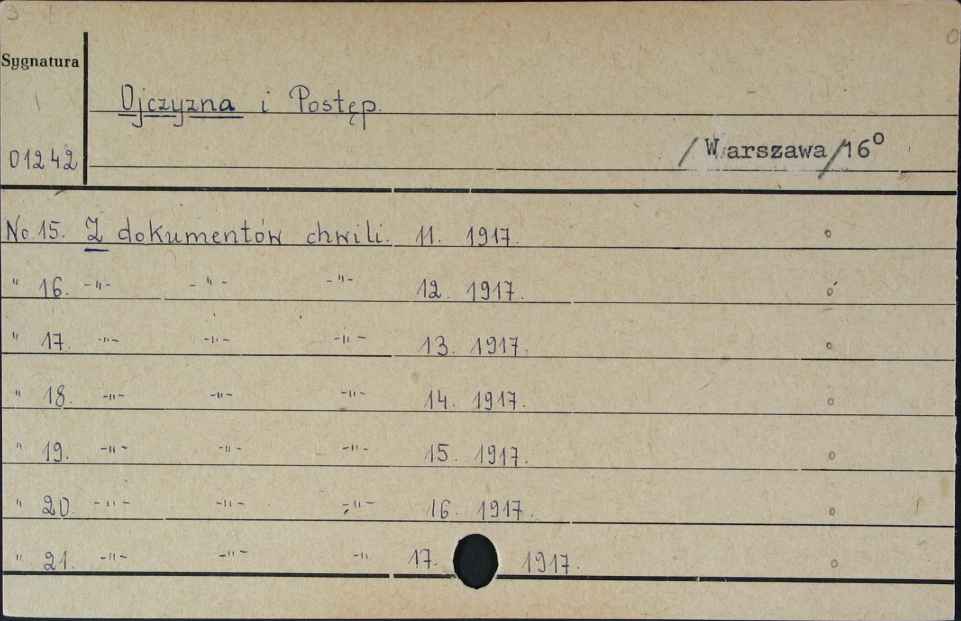 Sygnatura
Ojczyzna i Postęp.
01242
/Warszawa/16°
No.15. Z dokumentów chwili. 11. 1917. o
" 16. -"- -"- -"- 12. 1917. o
" 17. -"- -"- -"- 13. 1917. o
" 18. -"- -"- -"- 14. 1917. o
" 19. -"- -"- -"- 15. 1917. o
" 20. -"- -"- -"- 16. 1917. o
" 21. -"- -"- -" 17. 1917. o